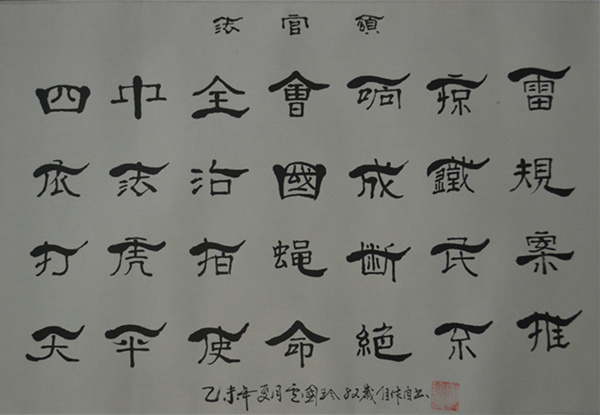 法官頌
四中全會响惊雷
依法治國成鐵規
打虎拍蝇断民案
天平使命絕不推
乙未年夏月 國玲